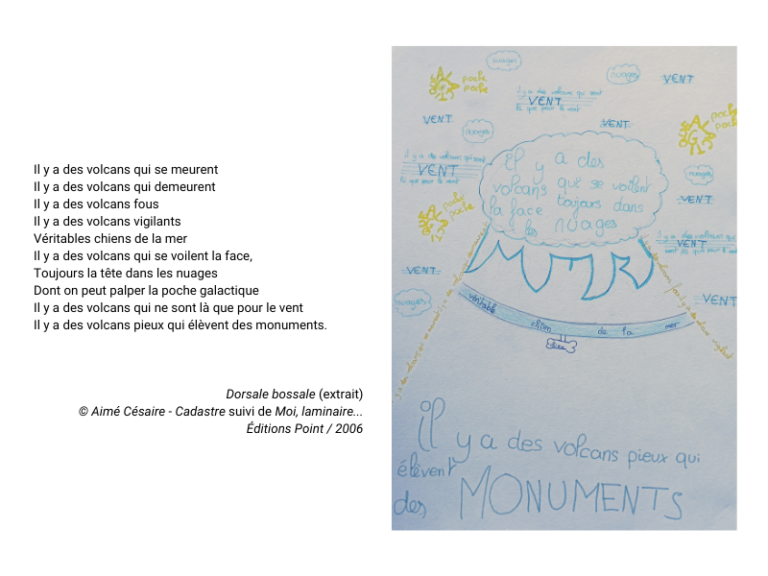 Il y a des volcans qui se meurent
Il y a des volcans qui demeurent
Il y a des volcans fous
Il y a des volcans vigilants
Véritables chiens de la mer
Il y a des volcans qui se voilent la face,
Toujours la tête dans les nuages
Dont on peut palper la poche galactique
Il y a des volcans qui ne sont là que pour le vent
Il y a des volcans pieux qui élèvent des monuments.
Dorsale bossale (extrait)
© Aimé Césaire - Cadastre suivi de Moi, laminaire...
Éditions Point / 2006
nuages
poche
poche
nuages
VENT
il y a des volcans qui sont
VENT
là que pour le vent
VENT
nuages
VENT
poche
poche
il y a des volcans qui sont
VENT
là que pour le vent
nuages
il y a des
volcans qui se voilent
la face toujours dans
les nuages
VENT
poche
poche
il y a des volcans qui
VENT
VENT
nuages
VENT
véritable chien de la mer
il y a des volcans pieux qui
élèvent
des MONUMENTS